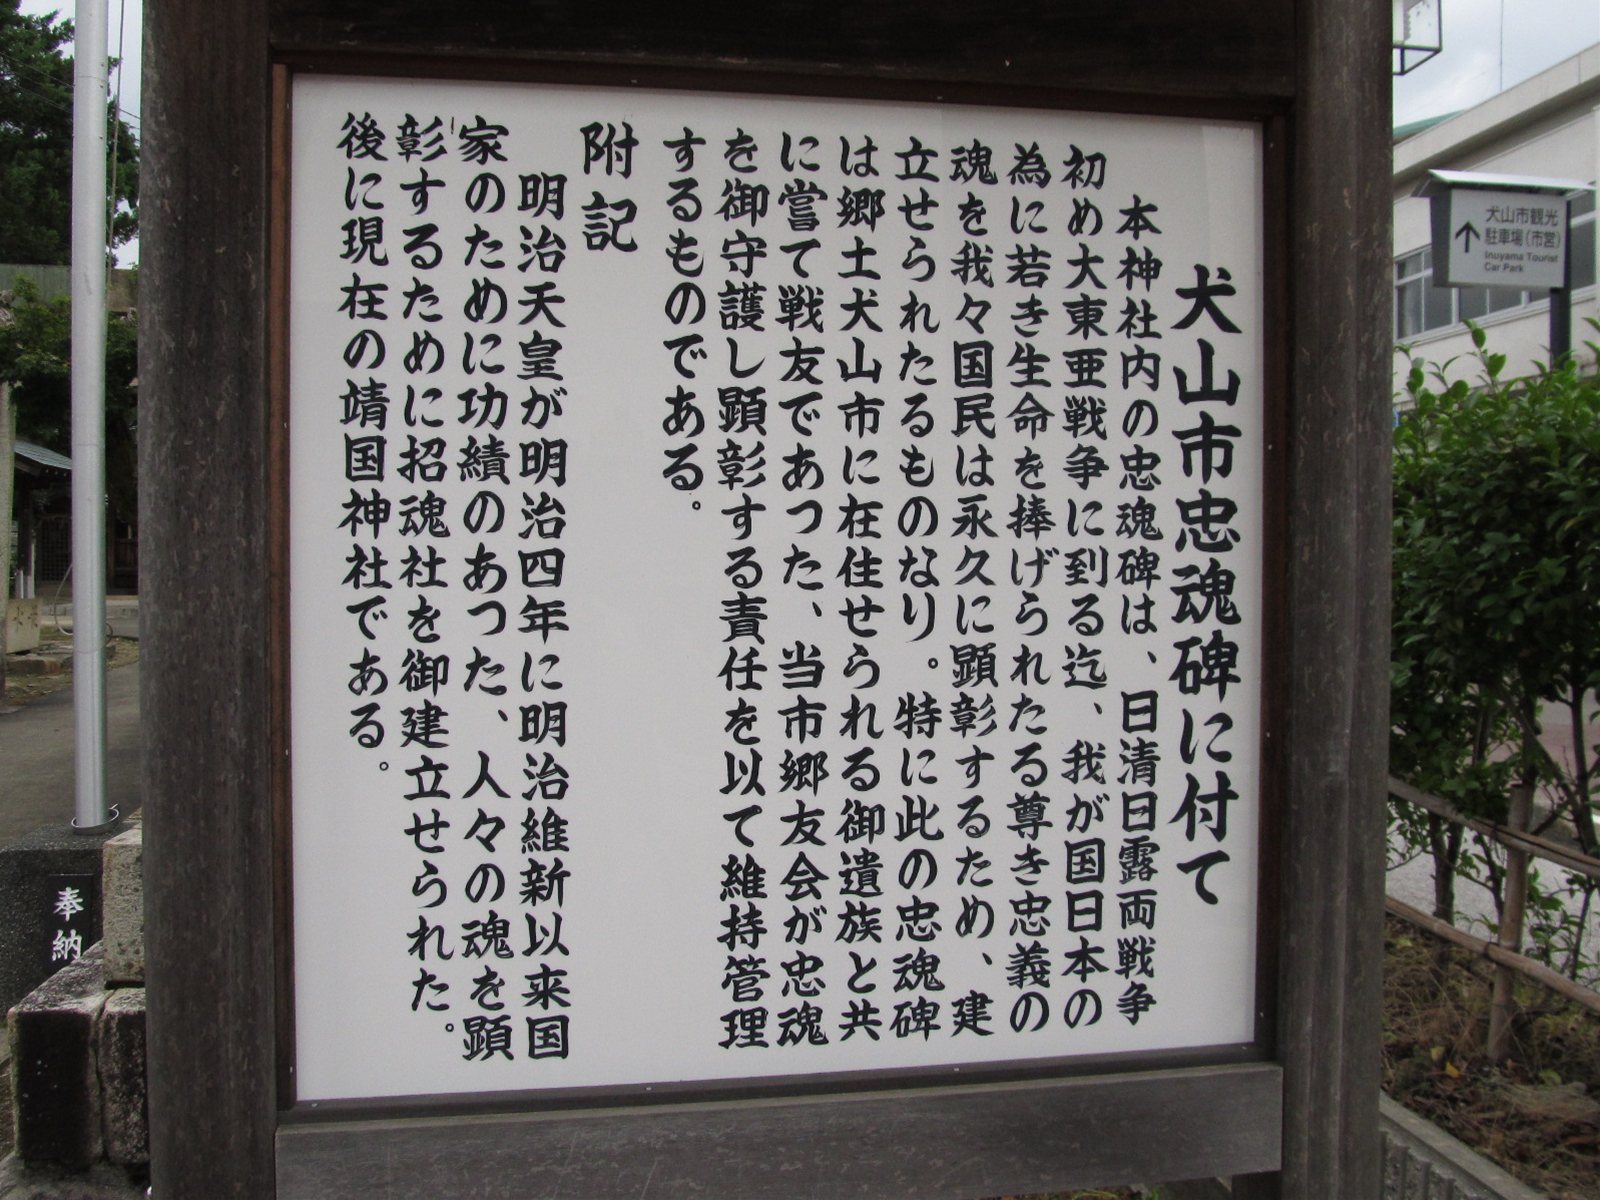 犬山市忠魂碑に付て
本神社内の忠魂碑は、日清日露両戦争
初め大東亜戦争に到る迄、我が国日本の
為に若き生命を捧げられたる尊き忠義の
魂を我々国民は永久に顕彰するため、建
立せられたるものなり。特に此の忠魂碑
は郷土犬山市に在住せられる御遺族と共
に嘗て戦友であつた、当市郷友会が忠魂
を御守護し顕彰する責任を以て維持管理
するものである。
附記
明治天皇が明治四年に明治維新以来国
家のために功績のあつた、人々の魂を顕
彰するために招魂社を御建立せられた。
後に現在の靖国神社である。
犬山市観光
駐車場(市営)
Inuyama Tourist
Car Park
奉納